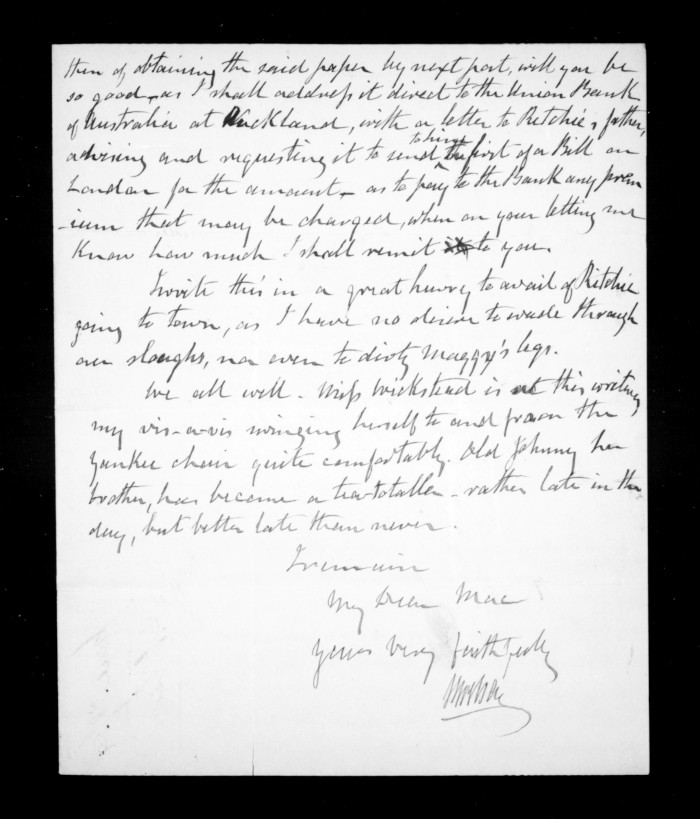 then of obtaining the said paper by next post, will you be
so good, as I shall address it direct to the Union Bank
of Australia at Auckland, with a letter to Ritchie's father,
advising and requesting it to send to him the first of a Bill on
London for the amount - as to pay to the Bank any prem
-ium that may be charged, when on your letting me
Know how much I shall remit to you.
I write this in a great hurry to avail of Ritchie
going to town, as I have no desire to wade through
our sloughs, nor even to dirty Maggy's legs.
We all well - Miss Wickstead is at this writing
my vis-a-vis swinging herself to and fro on the
Yankee chair quite comfortably. Old Johnny her
brother, has become a tea-totaller - rather late in the
day, but better late than never.
I remain
My Dear Mac
yours very faithfully